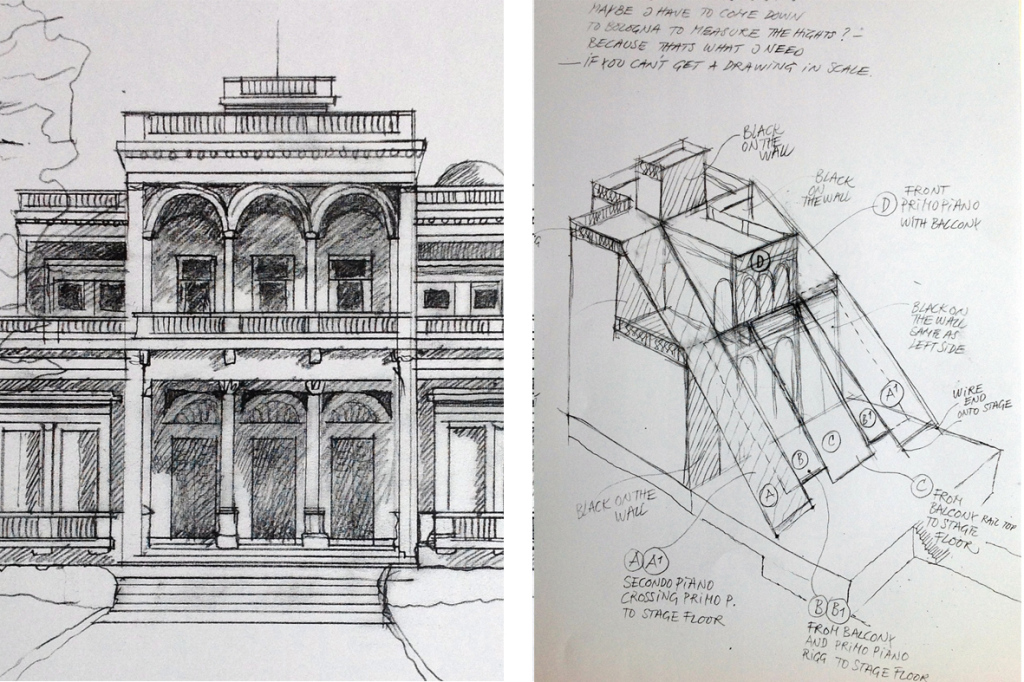 MAYBE I HAVE TO COME DOWN
TO BOLOGNA TO MEASURE THE HIGHTS? –
BECAUSE THATS WHAT I NEED
— IF YOU CAN'T GET A DRAWING IN SCALE.
BLACK
ON THE
WALL
BLACK
ON
THE WALL
D
FRONT
PRIMO PIANO
WITH BALCONY
D
BLACK ON
THE WALL
SAME AS
LEFT SIDE
WIRE
END
ONTO STAGE
A1
B1
C
B
A
BLACK ON THE
WALL
C
FROM
BALCONY RAIL TOP
TO STAGE
FLOOR
A A1
SECONDO PIANO
CROSSING PRIMO P.
TO STAGE FLOOR
B B1
FROM BALCONY
AND PRIMO PIANO
RIGG TO STAGE FLOOR